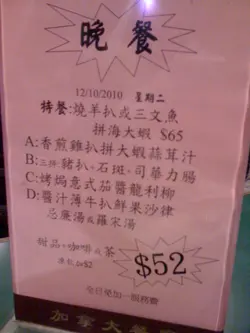 晚餐
12/10/2010 星期二
特餐:燒羊扒或三文魚
拼海大蝦 $65
A:香煎雞扒拼大蝦蒜茸汁
B:三拼豬扒、石斑、司華力腸
C:烤焗意式茄醬龍利柳
D:醬汁薄牛扒鮮果沙律
忌廉湯或羅宋湯
甜品、咖啡或茶
凍飲加$2
$52
全日免加一服務費
加拿大